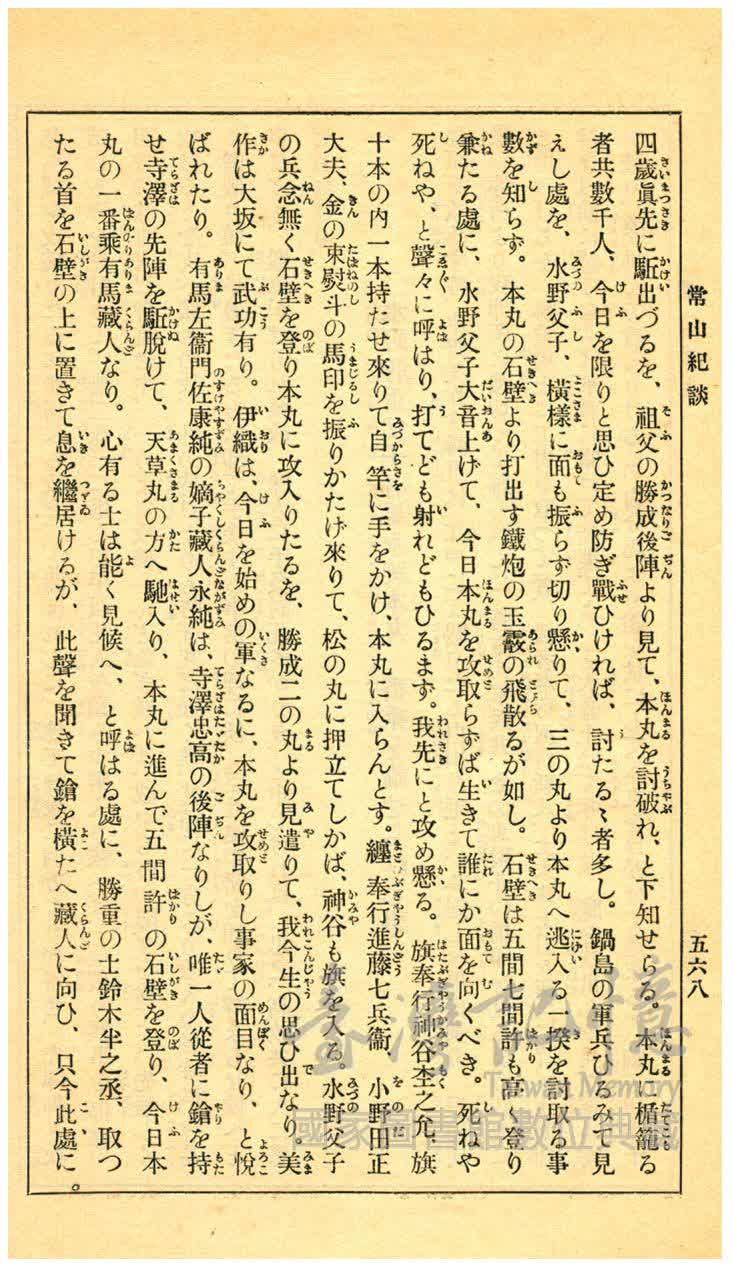 常山紀談
五六八
四歲眞先に駈出づるを、祖父の勝成後陣より見て、本丸を討破れ、と下知せらる。本丸に楯籠る
者共數千人、今日を限りと思ひ定め防ぎ戰ひければ、討たるゝ者多し。鍋島の軍兵ひるみて見
えし處を、水野父子、橫樣に面も振らず切り懸りて、三の丸より本丸へ逃入る一揆を討取る事
數を知らず。本丸の石壁より打出す鐵炮の玉霰の飛散るが如し。石壁は五間七間許も高く登り
兼たる處に、水野父子大音上げて、今日本丸を攻取らずば生きて誰にか面を向くべき。死ねや
死ねや、と聲々に呼はり、打てども射れどもひるまず。我先にと攻め懸る。旗奉行神谷杢之允、旗
十本の内一本持たせ來りて自竿に手をかけ、本丸に入らんとす。纏奉行進藤七兵衞、小野田正
大夫、金の束熨斗の馬印を振りかたげ來りて、松の丸に押立てしかば、神谷も旗を入る。水野父子
の兵念無く石壁を登り本丸に攻入りたるを、勝成二の丸より見遣りて、我今生の思ひ出なり。美
作は大坂にて武功有り。伊織は、今日を始めの軍なるに、本丸を攻取りし事家の面目なり、と悅
ばれたり。有馬左衞門佐康純の嫡子藏人永純は、寺澤忠高の後陣なりしが、唯一人從者に鎗を持
せ寺澤の先陣を駈脫けて、天草丸の方へ馳入り、本丸に進んで五間許の石壁を登り、今日本
丸の一番乘有馬藏人なり。心有る士は能く見候へ、と呼はる處に、勝重の士鈴木半之丞、取つ
たる首を石壁の上に置きて息を繼居けるが、此聲を聞きて鎗を橫たへ藏人に向ひ、只今此處に。
臺灣記憶
Taiwan Memory
國家圖書館數位典藏